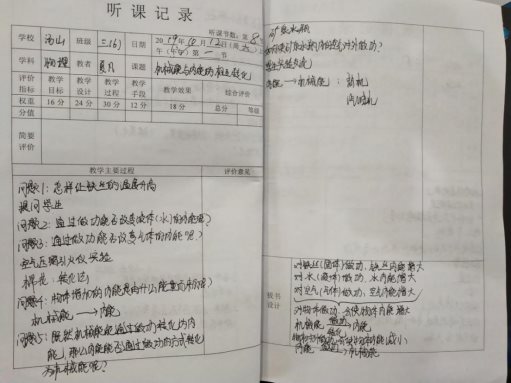 听课记录
听课节数: 第8
学校 汤山 班级 三(6) 日期 2019年12月12日(周五)
午 第一节
学科 物理 教者 夏月 课题 机械能与内能的相互转化
评价指标 教学目标 教学设计 教学过程 教学手段 教学效果 综合评价
权重 16分 24分 30分 12分 18分 总分 等级
分值
简要评价
教学主要过程 评价意见
问题1: 怎样让铁丝的温度升高
提问学生
问题2: 通过做功能否改变液体(水)的内能呢?
问题3: 通过做功能否改变气体的内能呢?
空气压缩引火仪 实验
转化法
问题4: 物体增加的内能是由什么能量转化而来呢?
机械能 → 内能
问题5: 既然机械能能通过做功转化为内
能, 那么内能能否通过做功的方式转化
为机械能呢?
对外做功?
学生实验
内能 → 机械能:
汽油机
板书设计
对铁丝(固体)做功, 铁丝内能增大
对水(液体)做功, 水内能增大
对空气(气体)做功, 空气内能增大
对物体做功, 会使物体内能增大
机械能 → 内能
内能减小
内能 → 机械能